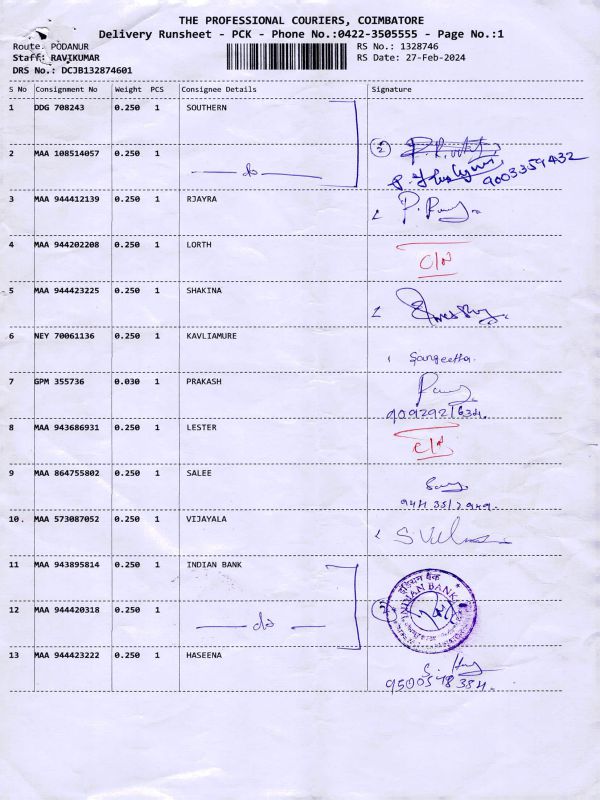 THE PROFESSIONAL COURIERS, COIMBATORE
Delivery Runsheet - PCK - Phone No.:0422-3505555 - Page No.:1
Route: PODANUR RS No.: 1328746
Staff: RAVIKUMAR RS Date: 27-Feb-2024
DRS No.: DCJB132874601
S No Consignment No Weight PCS Consignee Details Signature
1 DDG 708243 0.250 1 SOUTHERN
2 MAA 108514057 0.250 1 — do — 2
9003359432
3 MAA 944412139 0.250 1 RJAYRA
4 MAA 944202208 0.250 1 LORTH C/N
5 MAA 944423225 0.250 1 SHAKINA
6 NEY 70061136 0.250 1 KAVLIAMURE Sangeetha.
7 GPM 355736 0.030 1 PRAKASH
9092921634.
8 MAA 943686931 0.250 1 LESTER C/N
9 MAA 864755802 0.250 1 SALEE
10. MAA 573087052 0.250 1 VIJAYALA
11 MAA 943895814 0.250 1 INDIAN BANK
इंडियन बैंक
INDIAN BANK
12 MAA 944420318 0.250 1 — do —
13 MAA 944423222 0.250 1 HASEENA